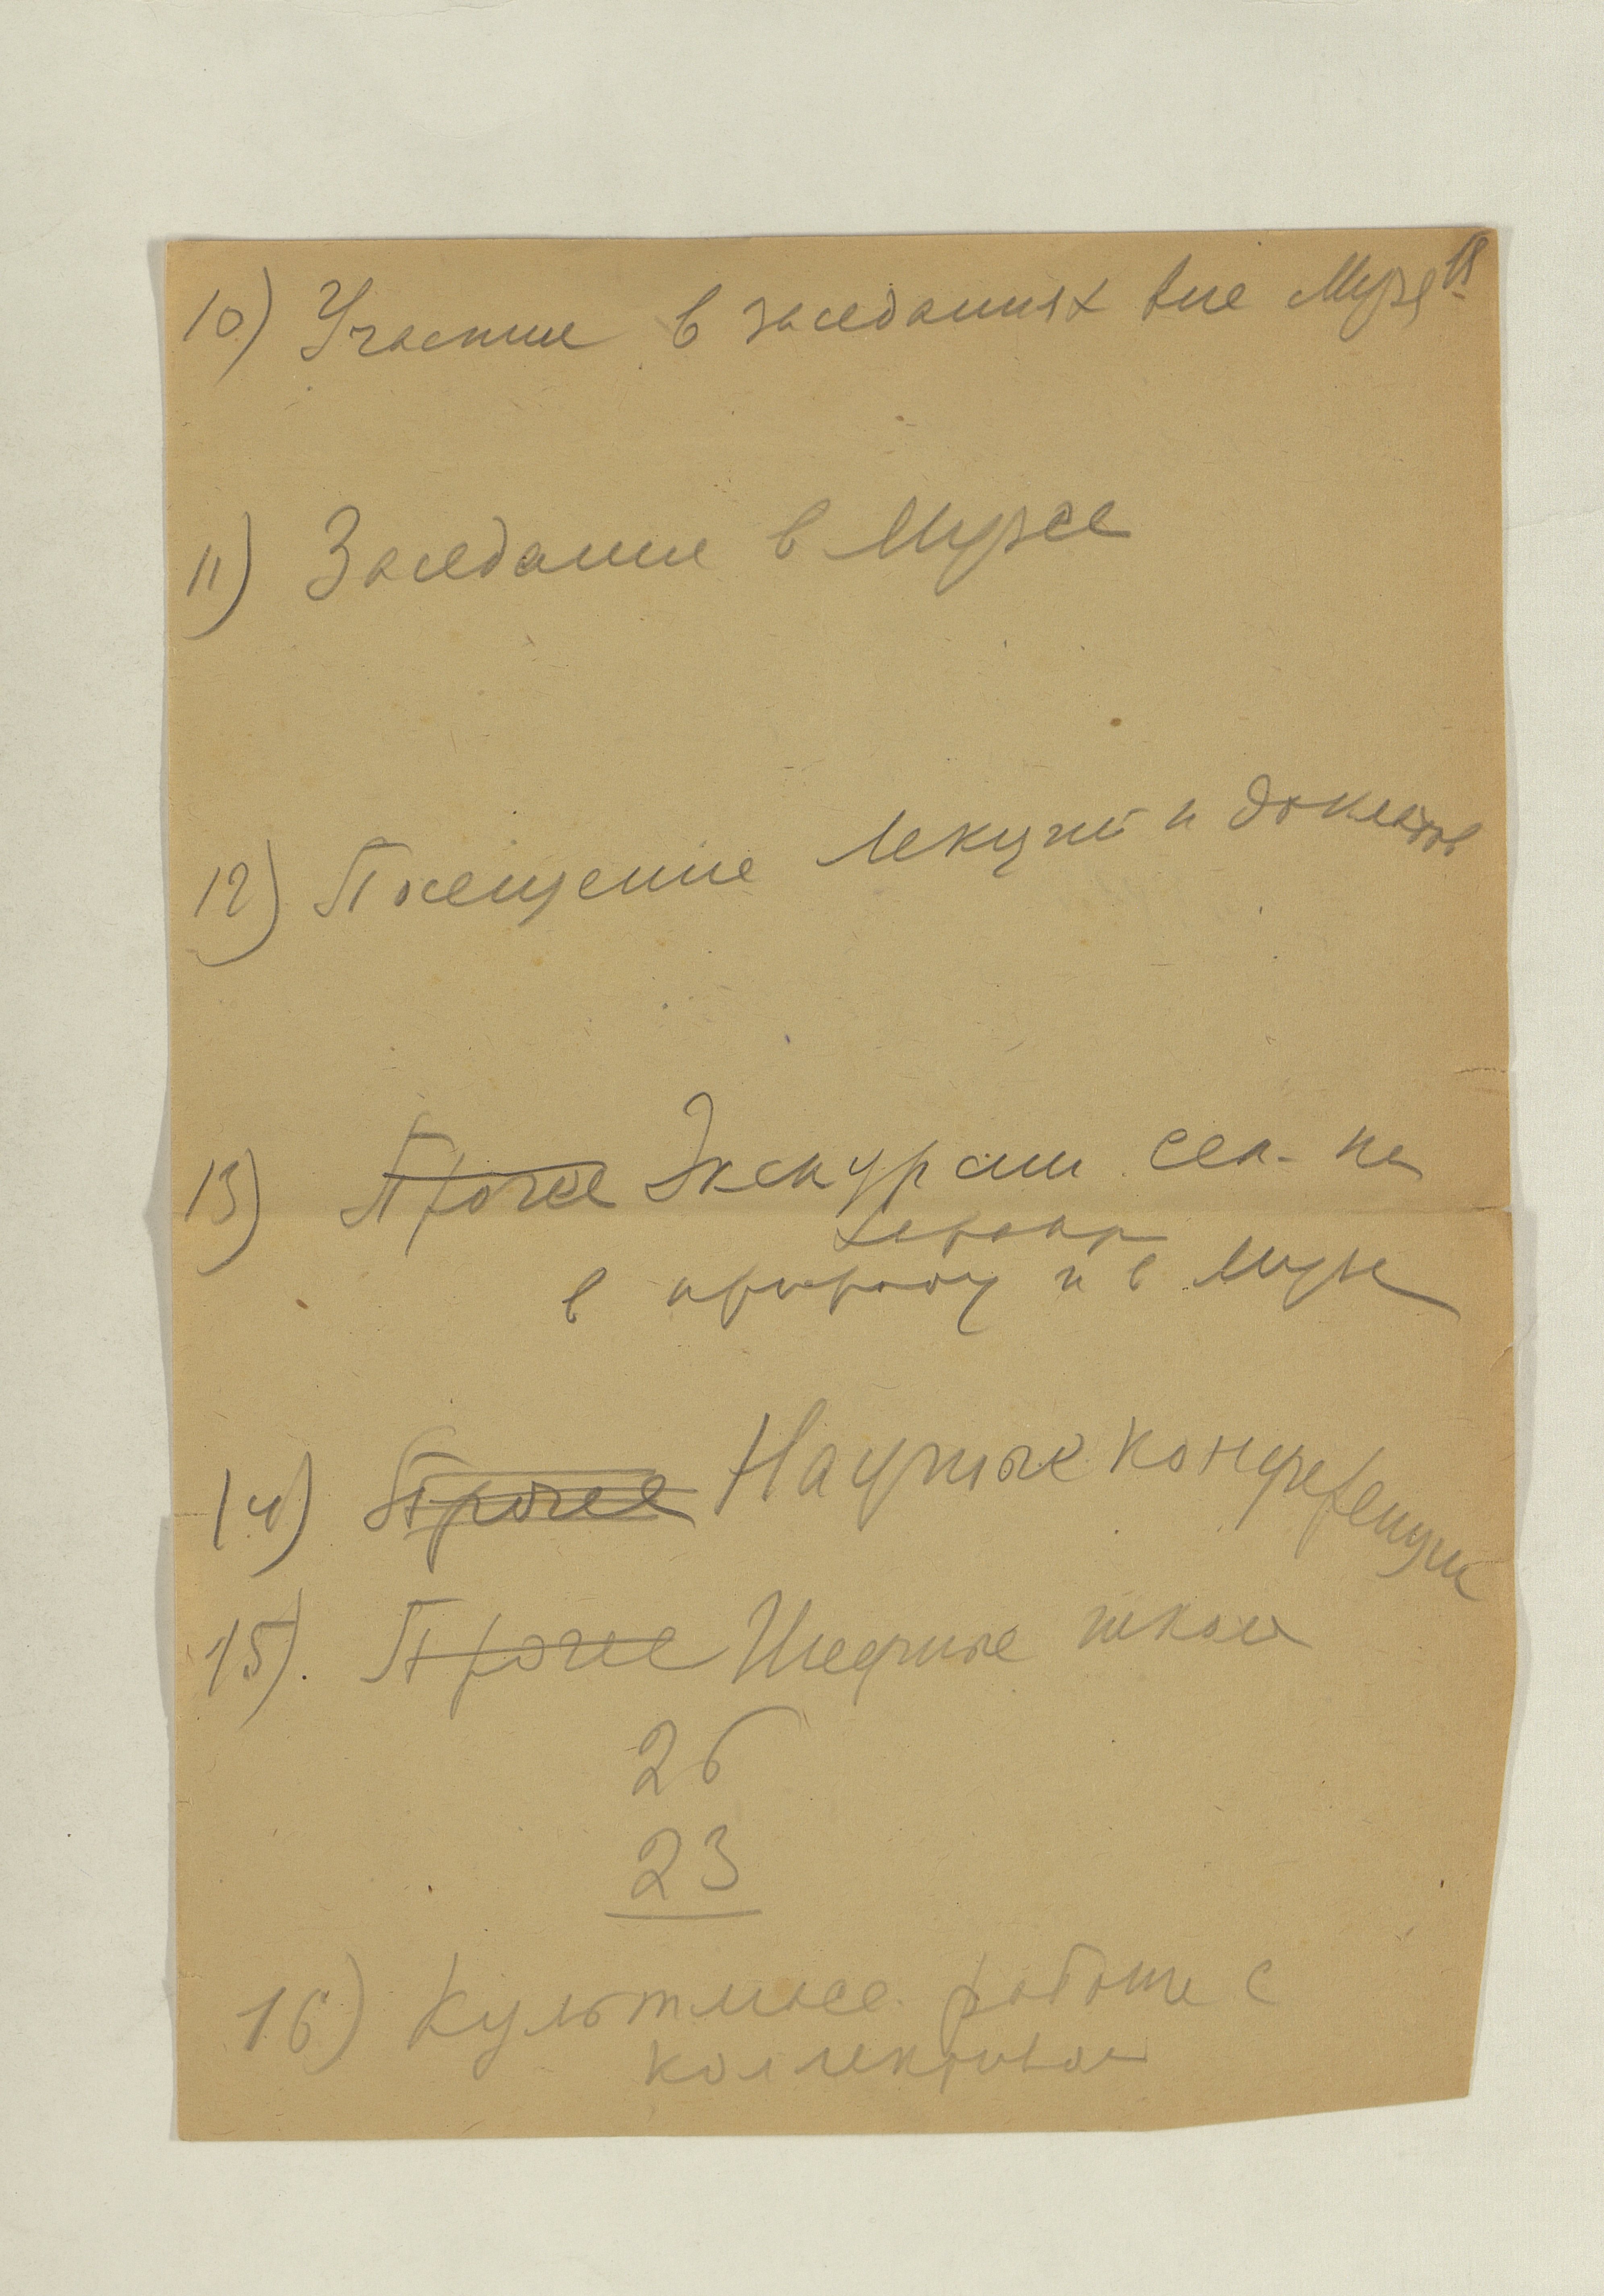 18
10) Участие в заседаниях вне Музея
11) Заседание в Музее
12) Посещение лекций и докладов
13) Прочее Экскурсии
в природу и в Музеи
14) Прочее Научные конференции
15). Прочее Шефные школы
26
23
16) Культмасс. работа с
коллективом